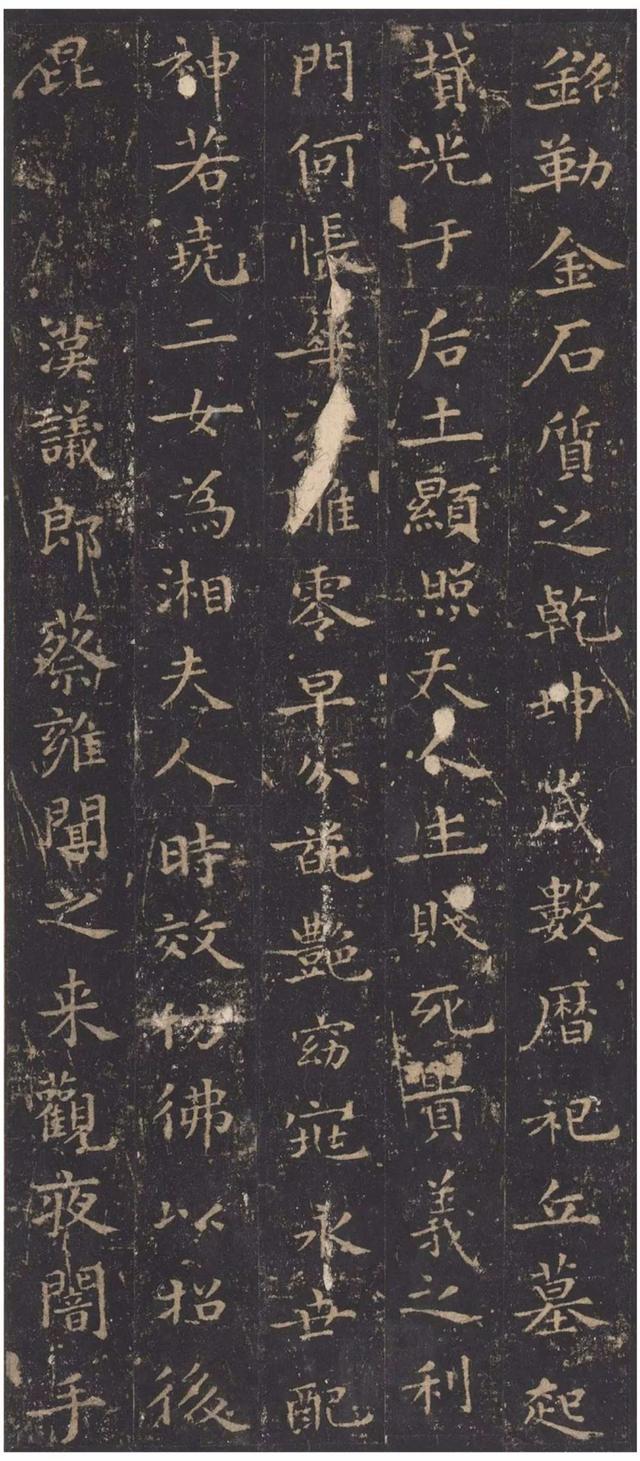 銘勒金石質之乾坤歳數暦祀丘墓起
墳光于后土顯照天人生賤死貴義之利
門何悵華落雕零早分葩艷窈窕永世配
神若堯二女為湘夫人時效仿彿以招後
昆 漢議郎蔡雍聞之来觀夜闇手